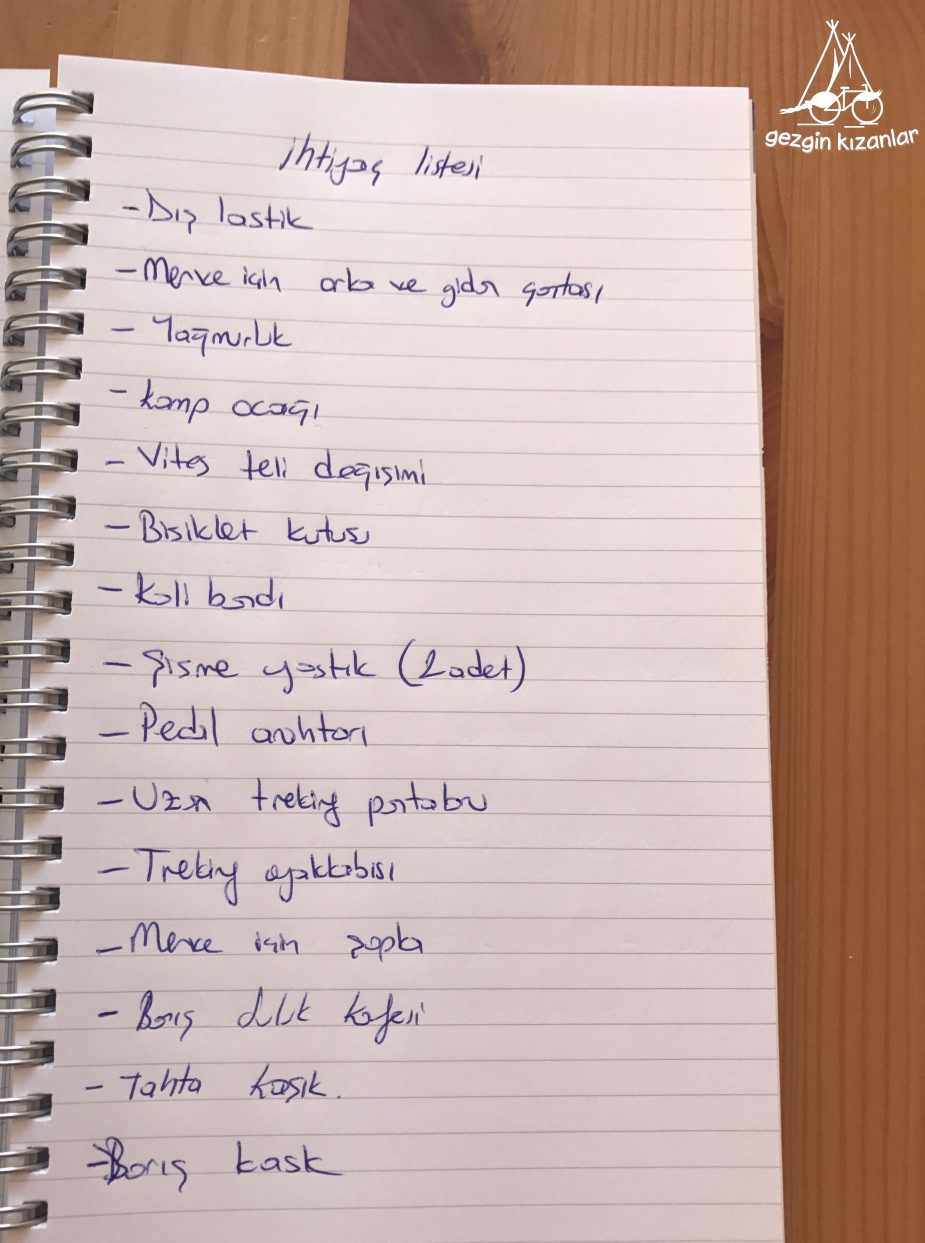 gezgin kızanlar
ihtiyaç listesi
- Dış lastik
- Merve için arka ve gidon çantası
- Yağmurluk
- kamp ocağı
- Vites teli değişimi
- Bisiklet kutusu
- Koli bandı
- Şişme yastık (2 adet)
- Pedal anahtarı
- Uzun treking pantalonu
- Treking ayakkabısı
- Merve için şapka
- Barış suluk kafesi
- Tahta kaşık.
- Barış kask